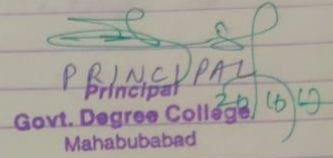 PRINCIPAL
Principal
Govt. Degree College
Mahabubabad